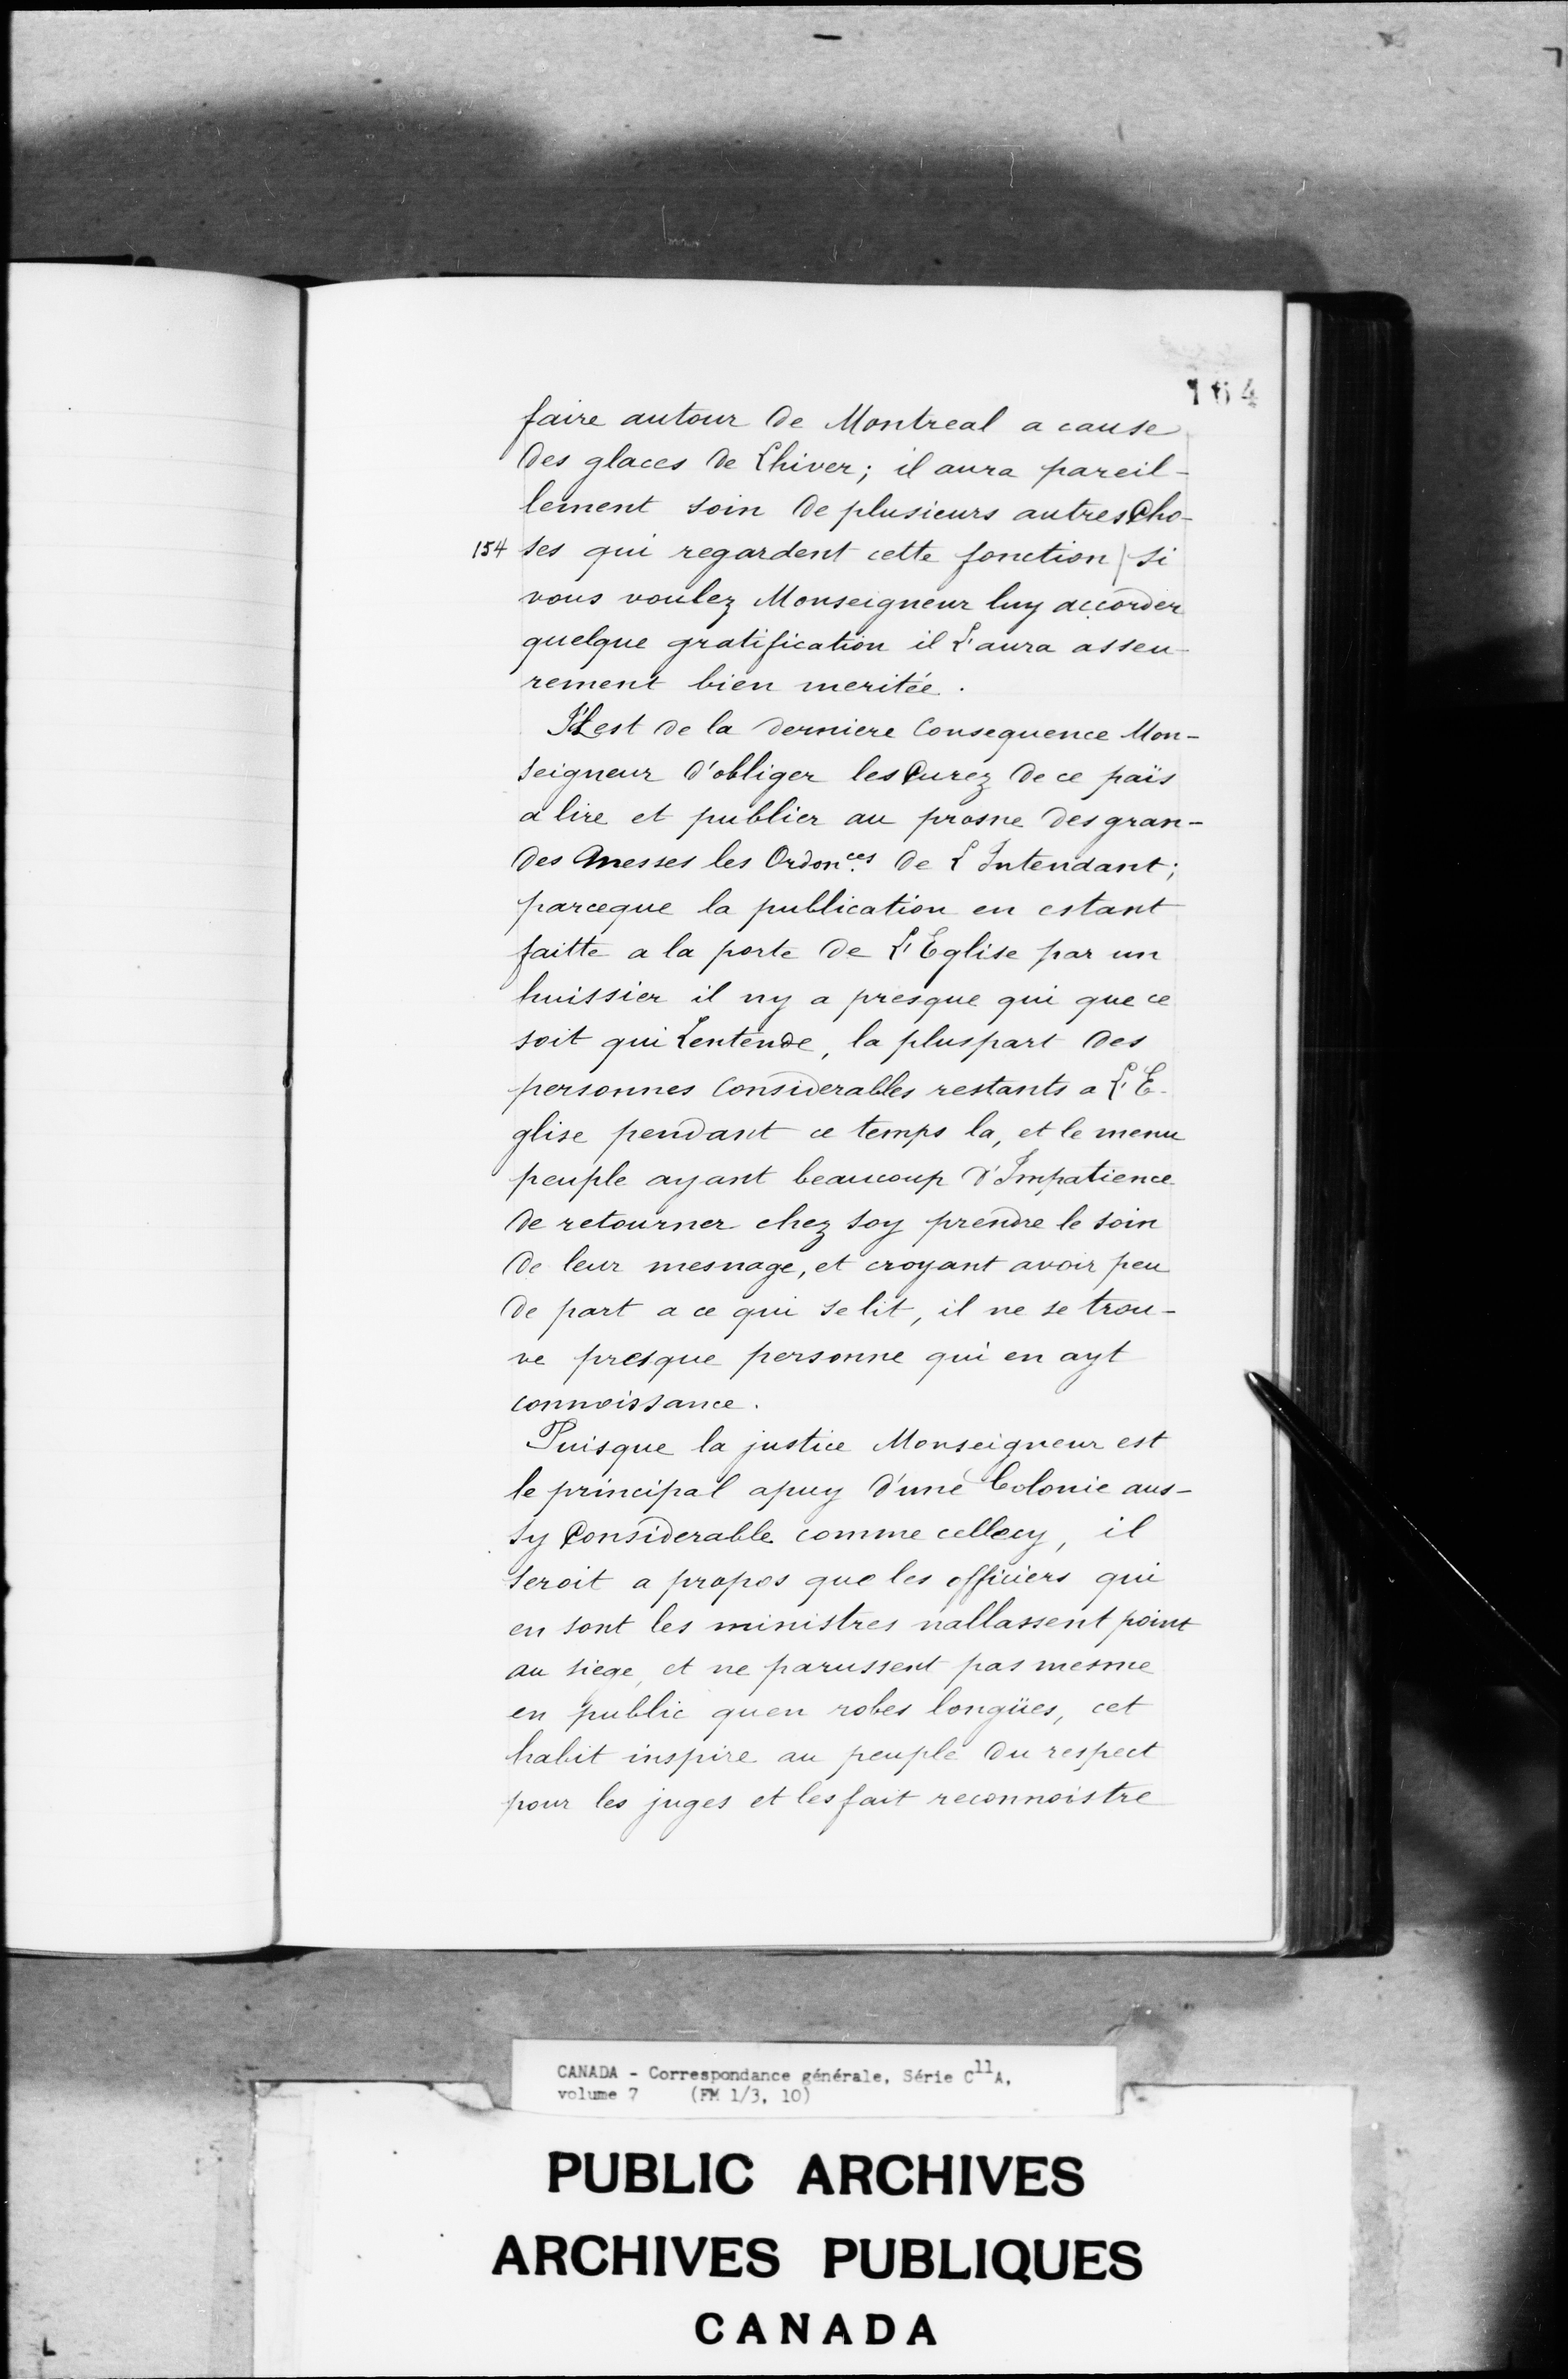 164
faire autour de Montreal a cause
des glaces de Lhiver; il aura pareil-
lement soin de plusieurs autres Cho-
154 ses qui regardent cette fonction | si
vous voulez Monseigneur luy accorder
quelque gratification il L'aura asseu-
rement bien meritée.
Il est de la derniere Consequence Mon-
seigneur d'obliger les Curez de ce païs
a lire et publier au prosne des gran-
des Messes les Ordon.ces de L Intendant;
parceque la publication en estant
faitte a la porte de L'Eglise par un
huissier il ny a presque qui que ce
soit qui Lentende, la pluspart des
personnes Considerables restants a L'E-
glise pendant ce temps la, et le menu
peuple ayant beaucoup d'Impatience
de retourner chez soy prendre le soin
de leur mesnage, et croyant avoir peu
de part a ce qui se lit, il ne se trou-
ve presque personne qui en ayt
connoissance.
Puisque la justice Monseigneur est
le principal apuy d'une Colonie aus-
sy Considerable comme cellecy, il
seroit a propos que les officiers qui
en sont les ministres nallassent point
au siege, et ne parussent pas mesme
en public quen robes longües, cet
habit inspire au peuple du respect
pour les juges et les fait reconnoistre
CANADA - Correspondance générale, Série C11A,
volume 7 (FM 1/3, 10)
PUBLIC ARCHIVES
ARCHIVES PUBLIQUES
CANADA